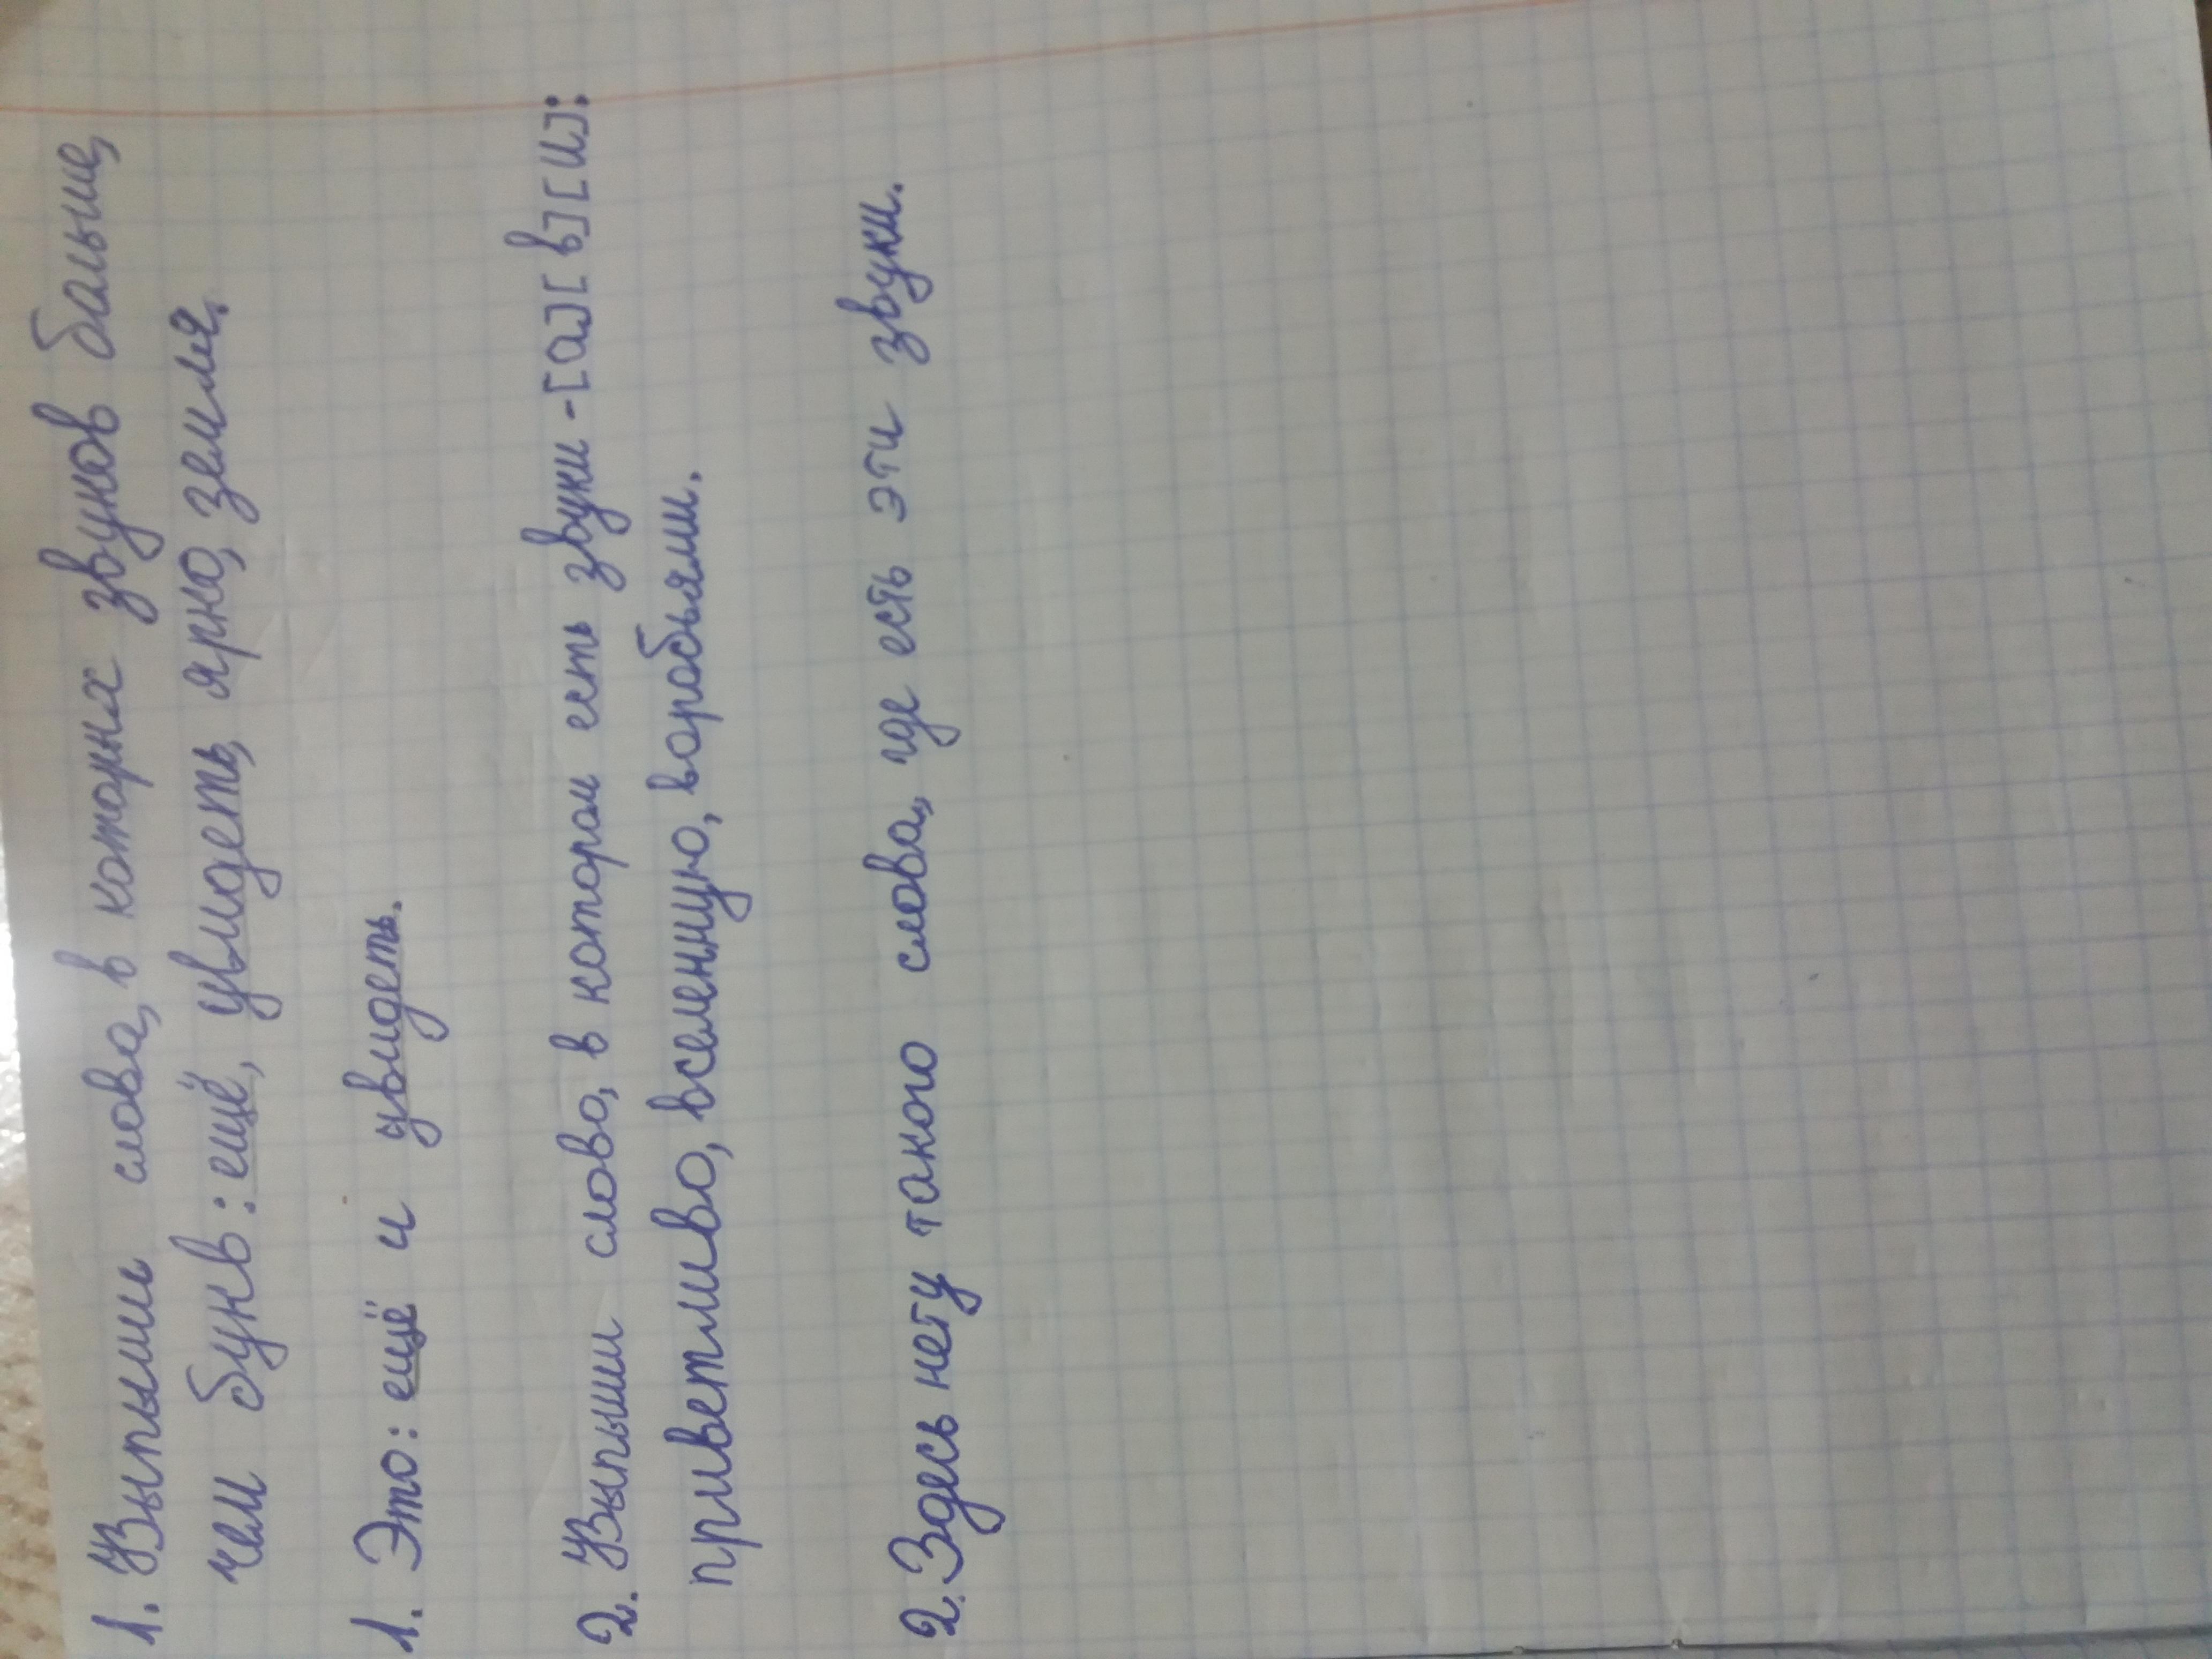 1. Выпиши слова, в которых звуков больше,
чем букв: ещё, увидеть, ярко, земля.
1. Это: ещё и увидеть.
2. Выпиши слово, в котором есть звуки -[а][в][и]:
приветливо, вселенную, воробьями.
2. Здесь нету такого слова, где есть эти звуки.